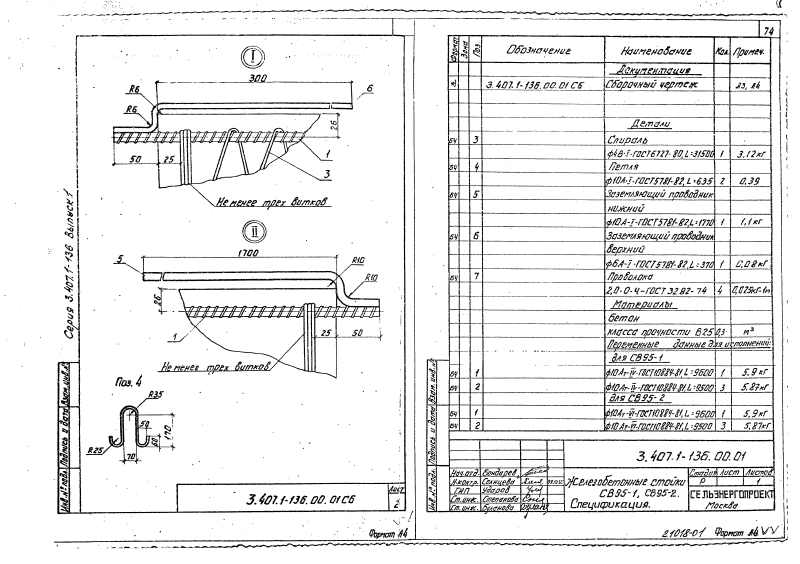 I
300
R6
R6
6
26
50
25
1
3
Не менее трех витков
II
1700
5
R10
R10
26
1
25
50
Не менее трех витков
Поз. 4
R35
50
60
170
R25
70
Серия 3.407.1-136 Выпуск 1
Инв. № подл. Подпись и дата Взам. инв. №
3.407.1-136.00.01 СБ
Лист
2
Формат А4
74
Формат Зона Поз. Обозначение Наименование Кол. Примеч.
Документация
3.407.1-136.00.01 СБ Сборочный чертеж 23, 24
Детали
БЧ 3 Спираль
ф4В-I-ГОСТ 6727-80, L=31500 1 3,12кг
БЧ 4 Петля
ф10А-I-ГОСТ 5781-82, L=635 2 0,39
БЧ 5 Заземляющий проводник
нижний
ф10А-I-ГОСТ 5781-82, L=1770 1 1,1кг
БЧ 6 Заземляющий проводник
верхний
ф6А-I-ГОСТ 5781-82, L=370 1 0,08кг
БЧ 7 Проволока
2,0-О-Ч-ГОСТ 3282-74 4 0,025кг-1м
Материалы
Бетон
класса прочности В25 0,3 м³
Переменные данные для исполнений:
для СВ95-1
БЧ 1 ф10Ат-VI-ГОСТ 10884-81, L=9600 1 5,9кг
БЧ 2 ф10Ат-VI-ГОСТ 10884-81, L=9500 3 5,87кг
для СВ95-2
БЧ 1 ф10Ат-VI-ГОСТ 10884-81, L=9600 1 5,9кг
БЧ 2 ф10Ат-VI-ГОСТ 10884-81, L=9500 3 5,87кг
Инв. № подл. Подпись и дата Взам. инв. №
3.407.1-136.00.01
Нач. отд. Бондарев
Н.контр. Солнцева
ГИП Ударов
Ст. инж. Степанова
Ст. инж.
Железобетонные стойки
СВ95-1, СВ95-2.
Спецификация.
Стадия Лист Листов
Р 1
СЕЛЬЭНЕРГОПРОЕКТ
Москва
21018-01 Формат А4